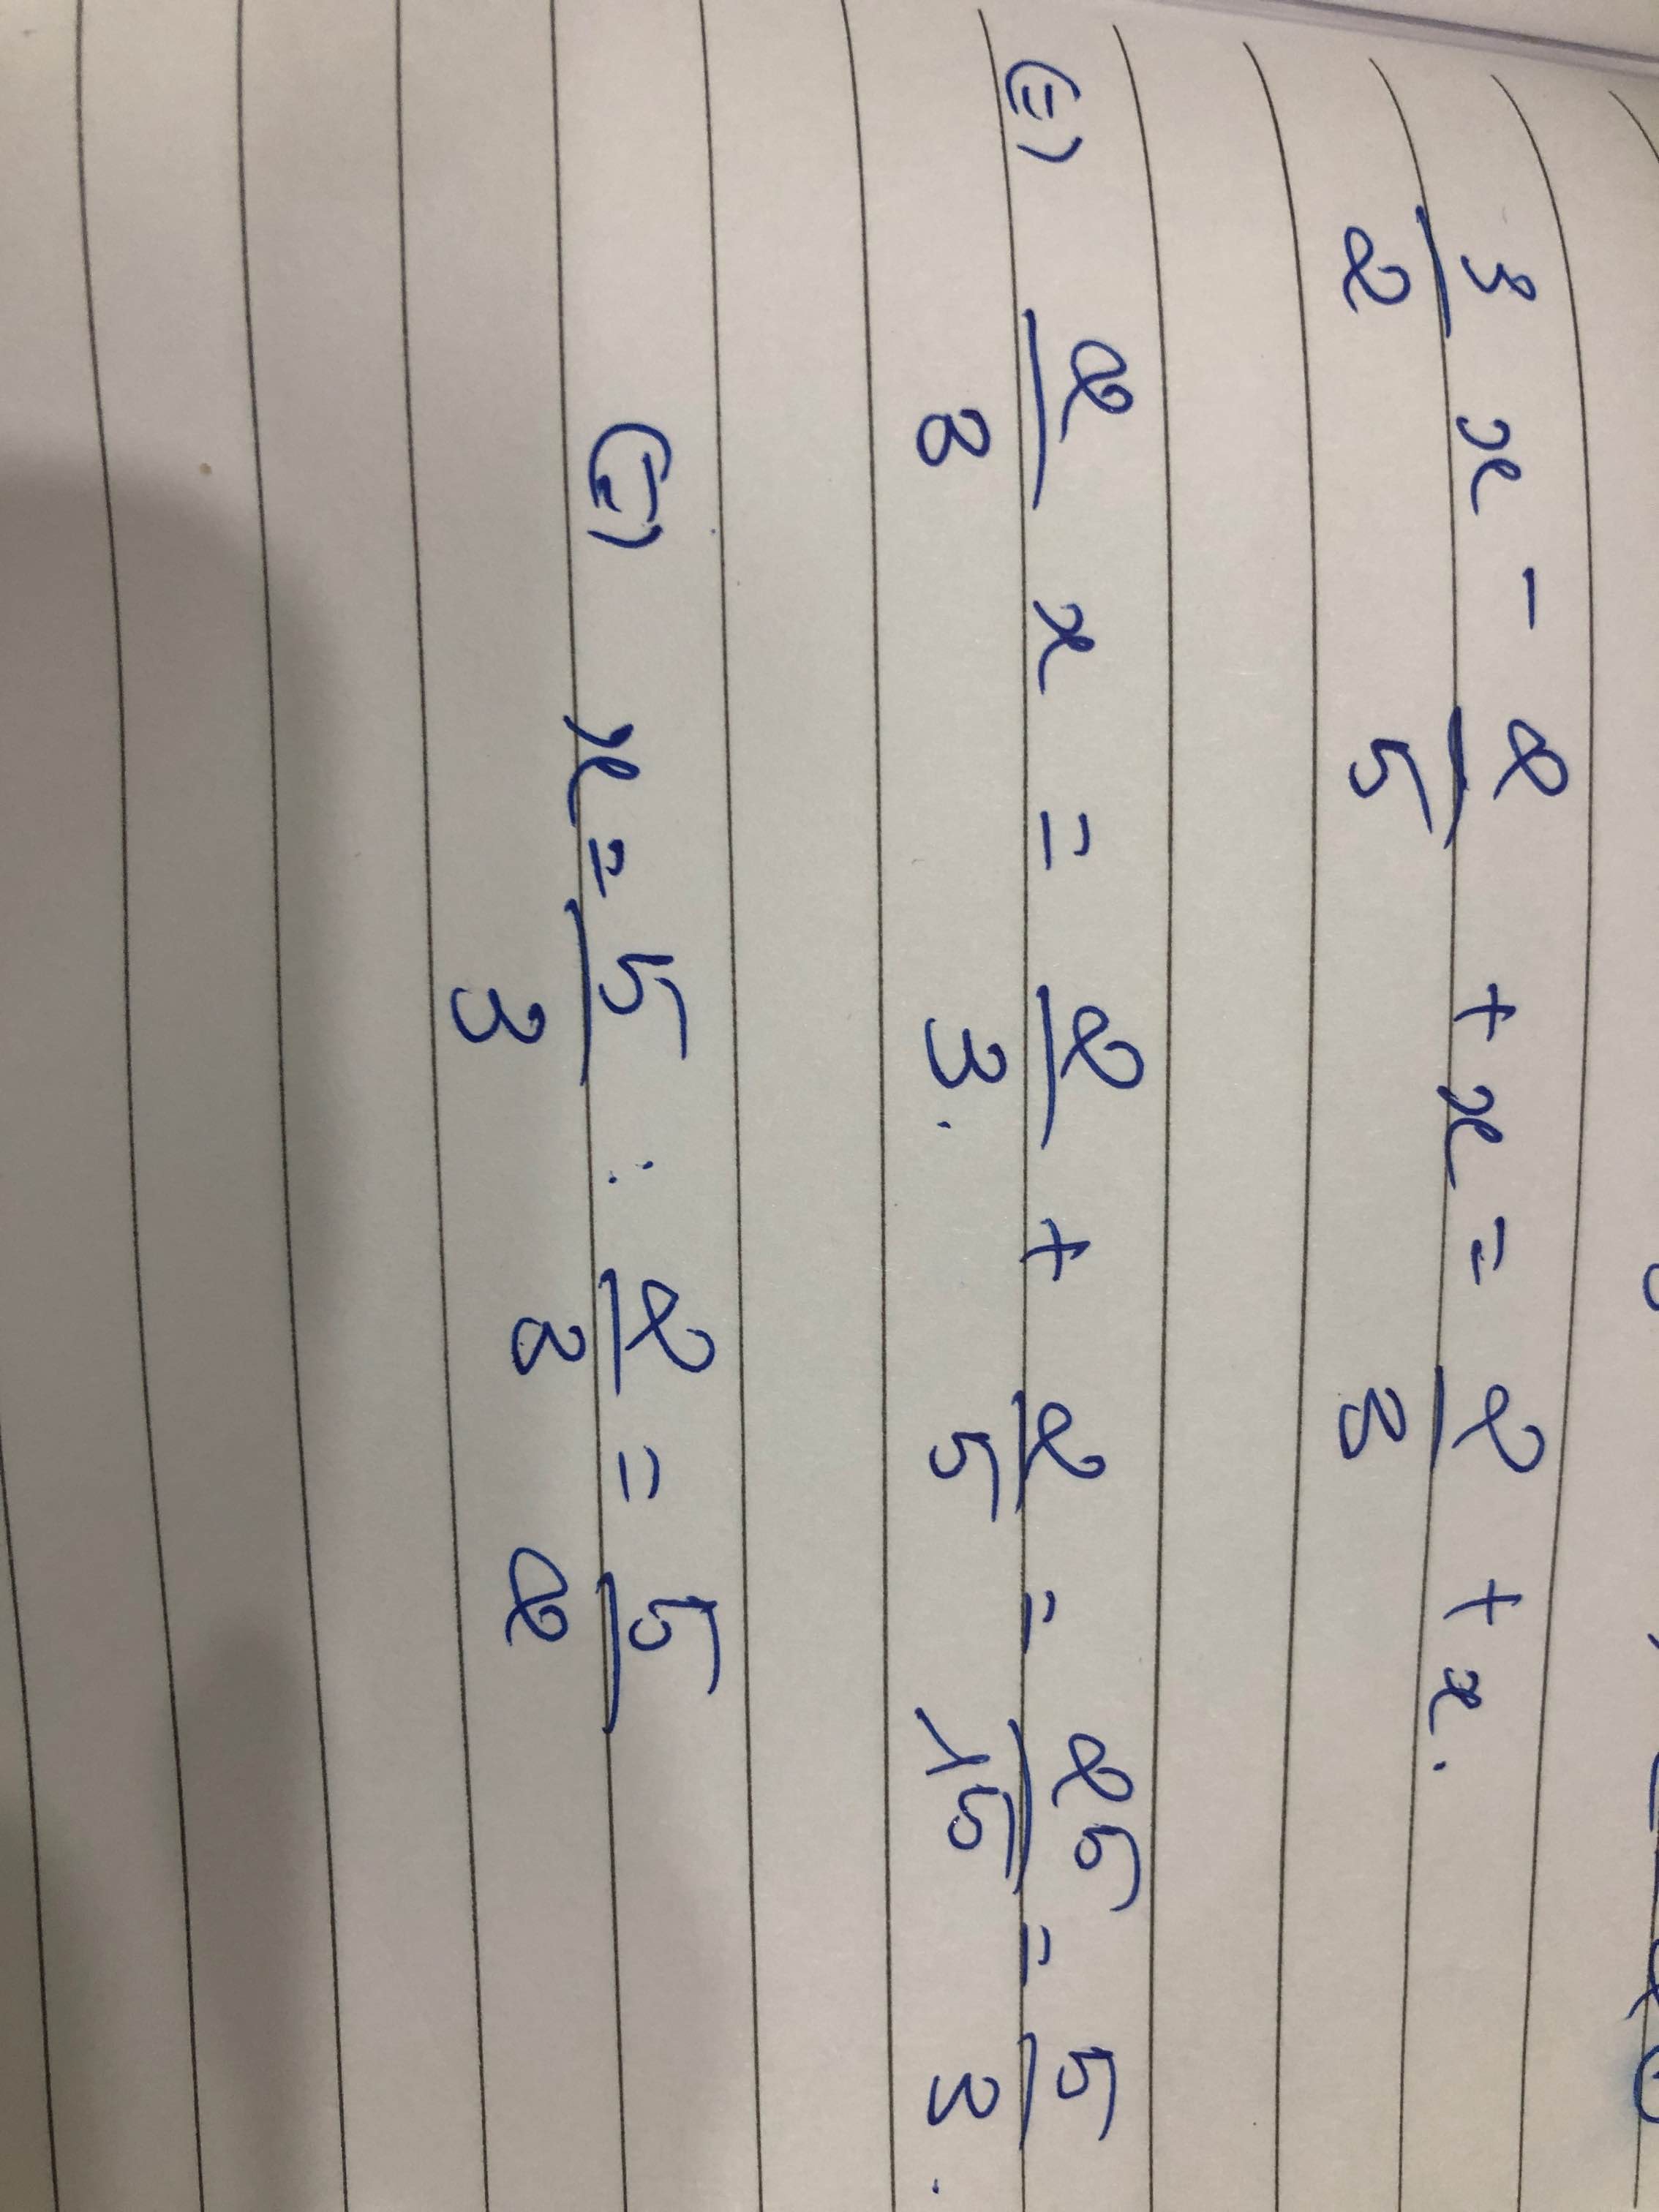 3/2 x - 2/5 + x = 2/3 + x.
(=) 2/3 x = 2/3. + 2/5 = 25/15 = 5/3.
(=) x = 5/3 : 2/3 = 5/2